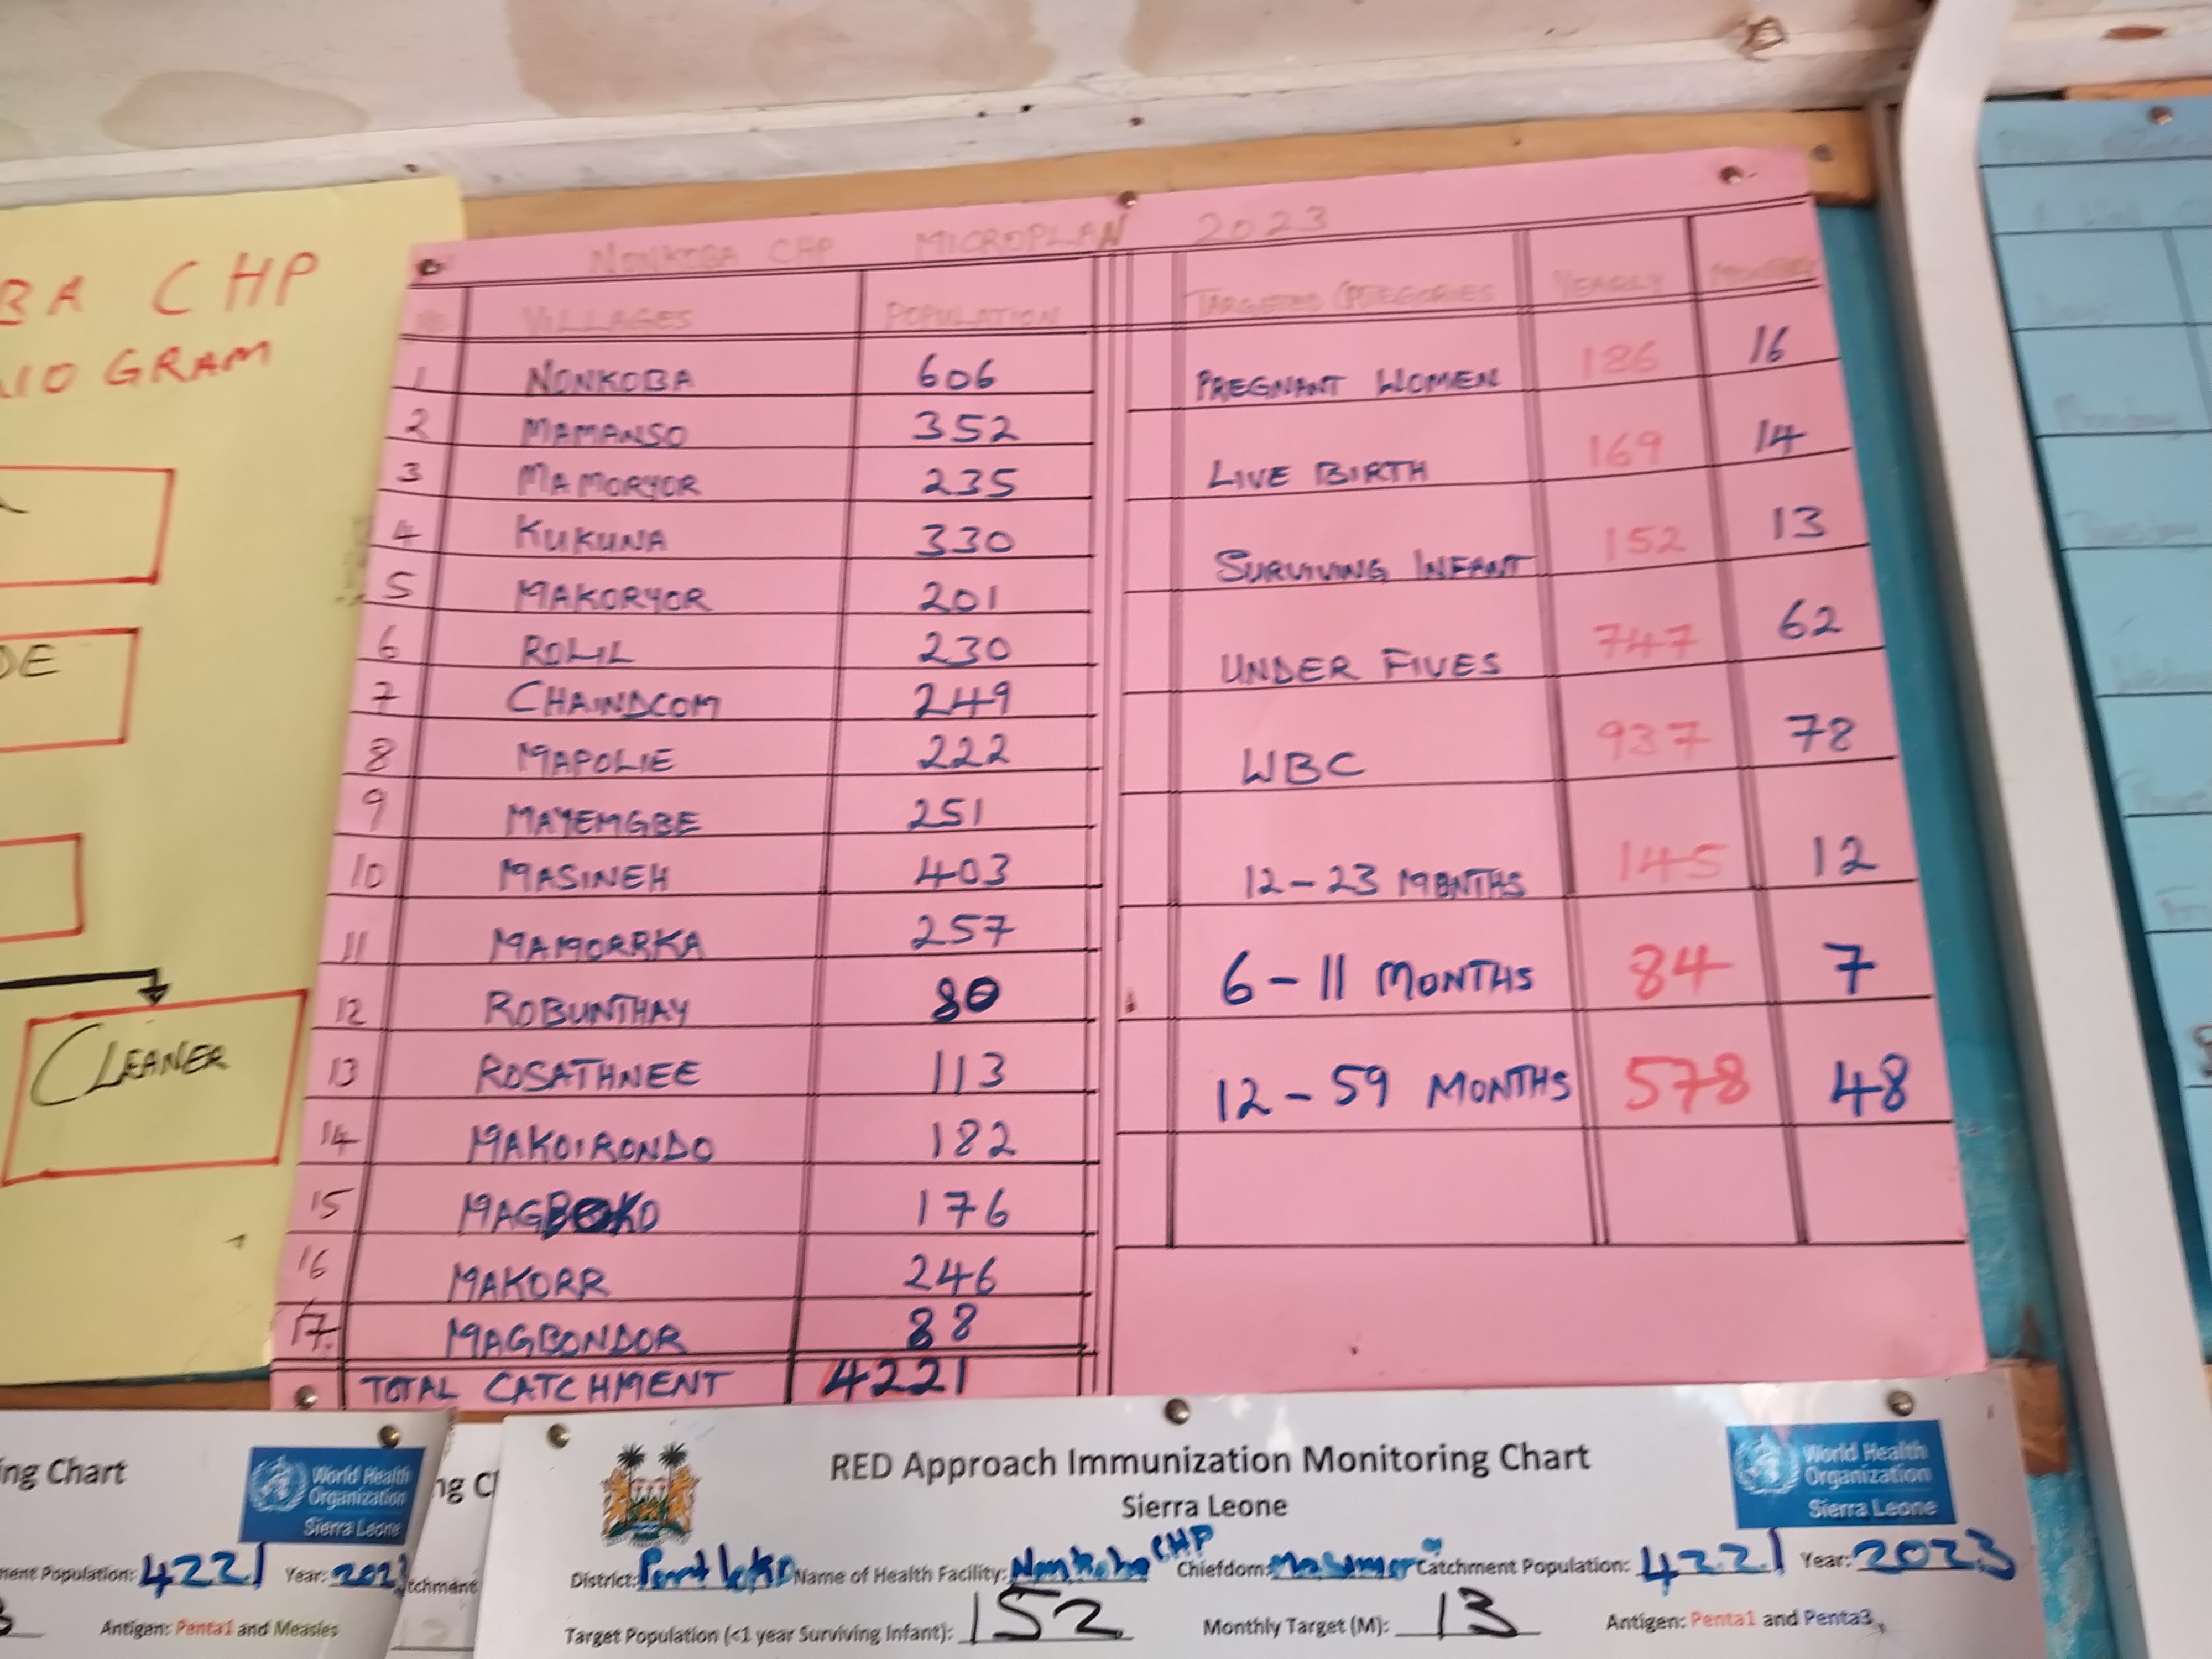 BA CHP
NO GRAM
DE
CLEANER
NONKOBA CHP MICROPLAN 2023
NO. VILLAGES POPULATION
1 NONKOBA 606
2 MAMANSO 352
3 MAMORYOR 235
4 KUKUNA 330
5 MAKORYOR 201
6 ROLIL 230
7 CHAINDCOM 249
8 MAPOLIE 222
9 MAYEMGBE 251
10 MASINEH 403
11 MAMORRKA 257
12 ROBUNTHAY 80
13 ROSATHNEE 113
14 MAKOIRONDO 182
15 MAGBOKO 176
16 MAKORR 246
17. MAGBONDOR 88
TOTAL CATCHMENT 4221
TARGETED CATEGORIES YEARLY MONTHLY
PREGNANT WOMEN 186 16
LIVE BIRTH 169 14
SURVIVING INFANT 152 13
UNDER FIVES 747 62
WBC 937 78
12-23 MONTHS 145 12
6-11 MONTHS 84 7
12-59 MONTHS 578 48
ing Chart
World Health
Organization
Sierra Leone
ment Population: 4221 Year: 2023
Antigen: Penta1 and Measles
ng C
tchment
RED Approach Immunization Monitoring Chart
Sierra Leone
World Health
Organization
Sierra Leone
District: Port loko Name of Health Facility: Nonkoba CHP Chiefdom: Masimera Catchment Population: 4221 Year: 2023
Target Population (<1 year Surviving Infant): 152 Monthly Target (M): 13 Antigen: Penta1 and Penta3,
Monday
Tuesday